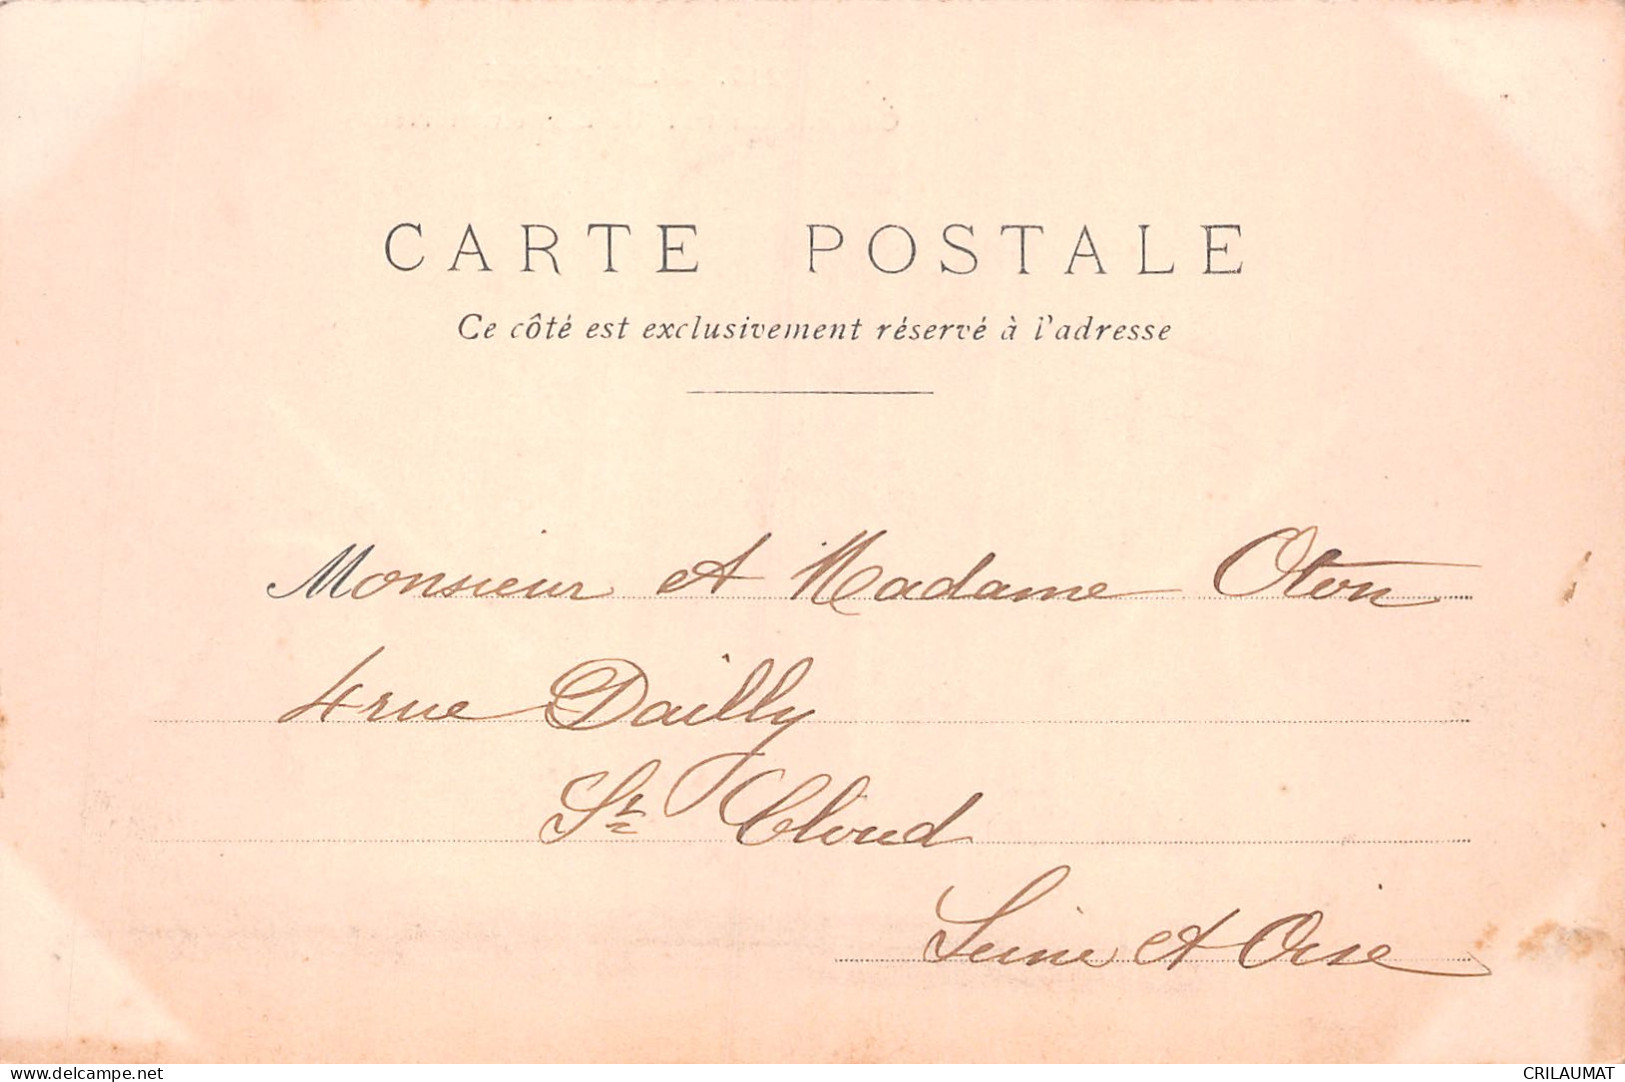 CARTE POSTALE
Ce côté est exclusivement réservé à l'adresse
Monsieur et Madame Oton
4 rue Dailly
St Cloud
Seine et Oise
www.delcampe.net
CRILAUMAT